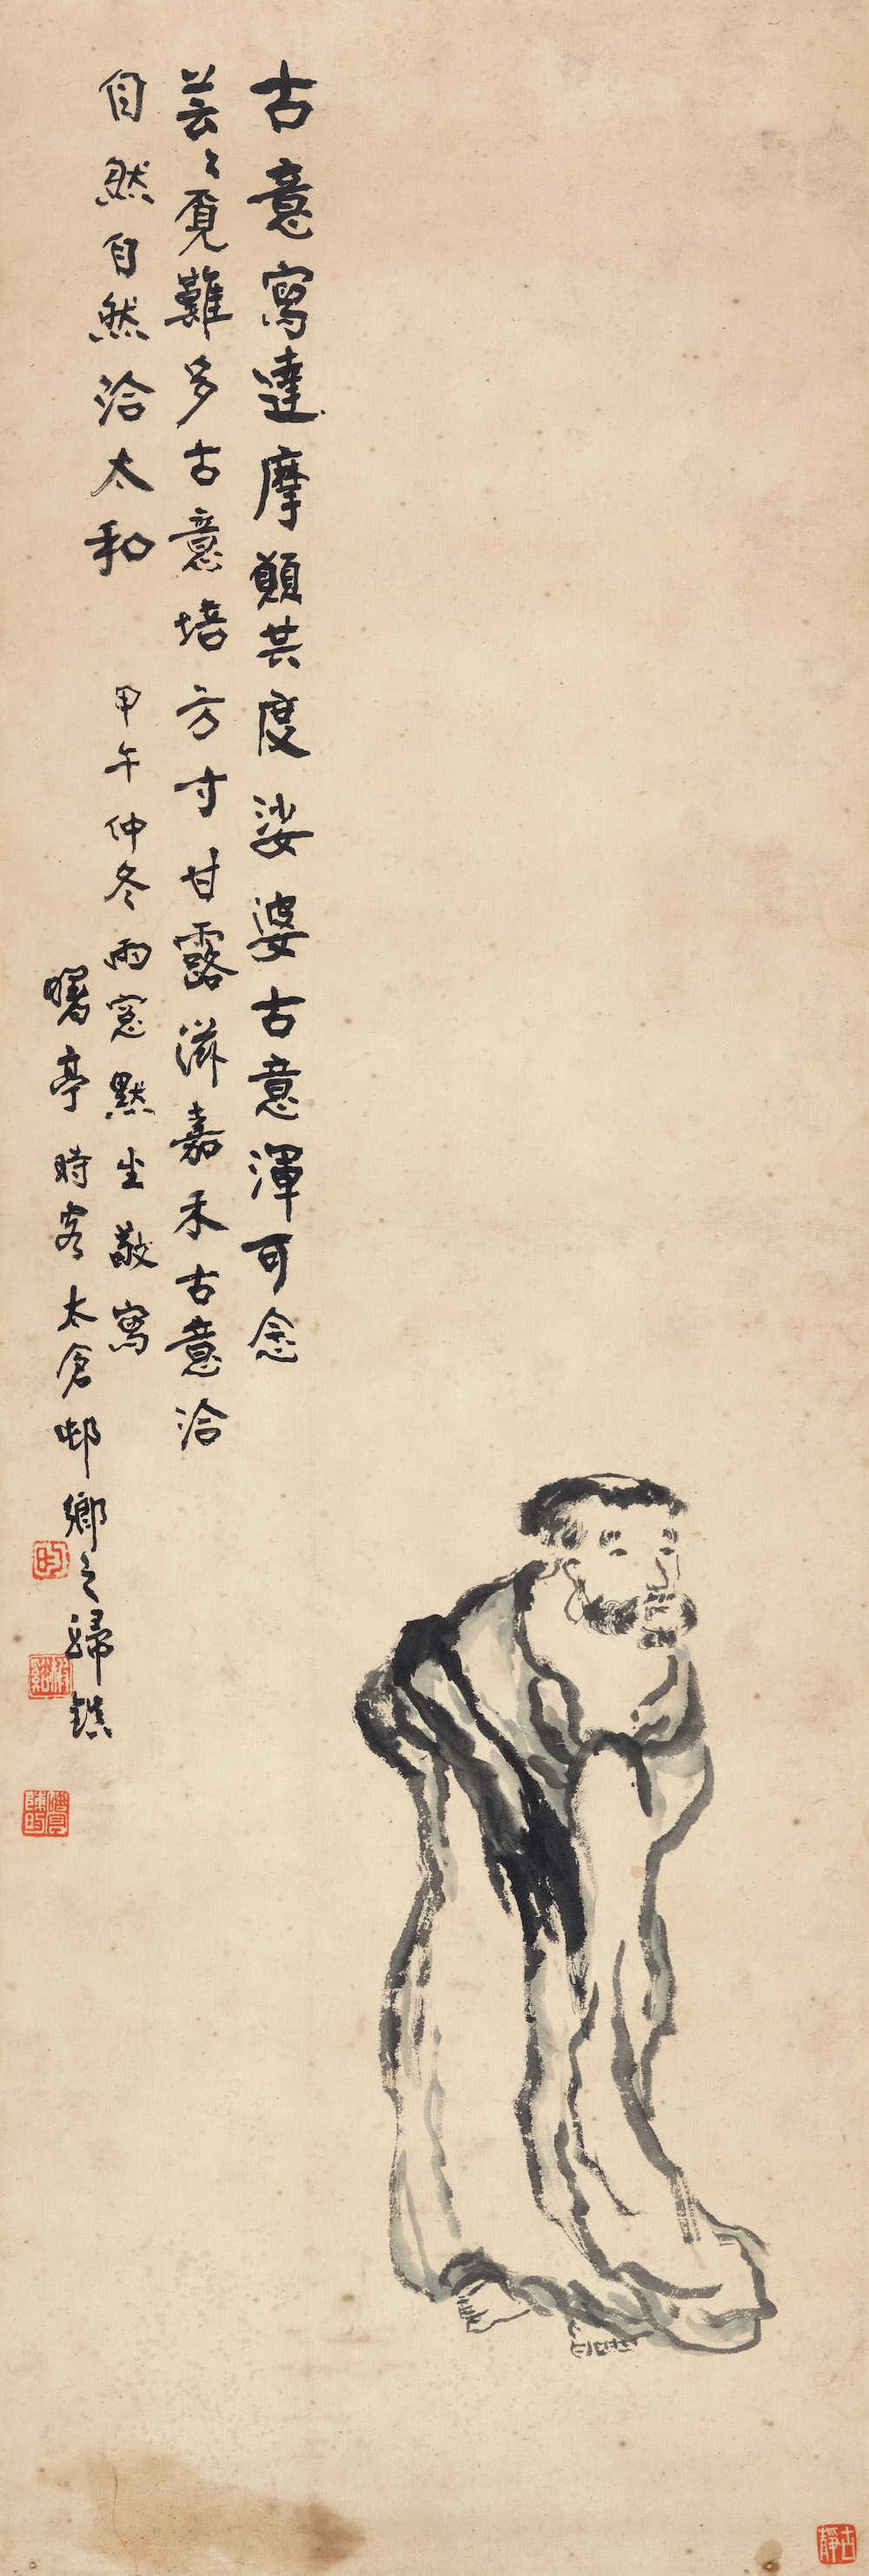 古意寫達摩願共度娑婆古意渾可念
芸々覓難多古意培方寸甘露滋嘉禾古意洽
自然自然洽太和
甲午仲冬雨窓默坐敬寫
曙亭時客太倉邨鄉之歸鎮
陳昀
古靜